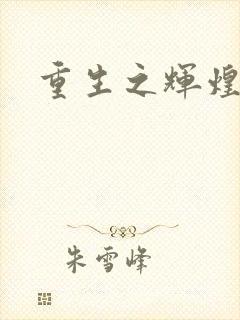 重生之辉煌
朱雪峰